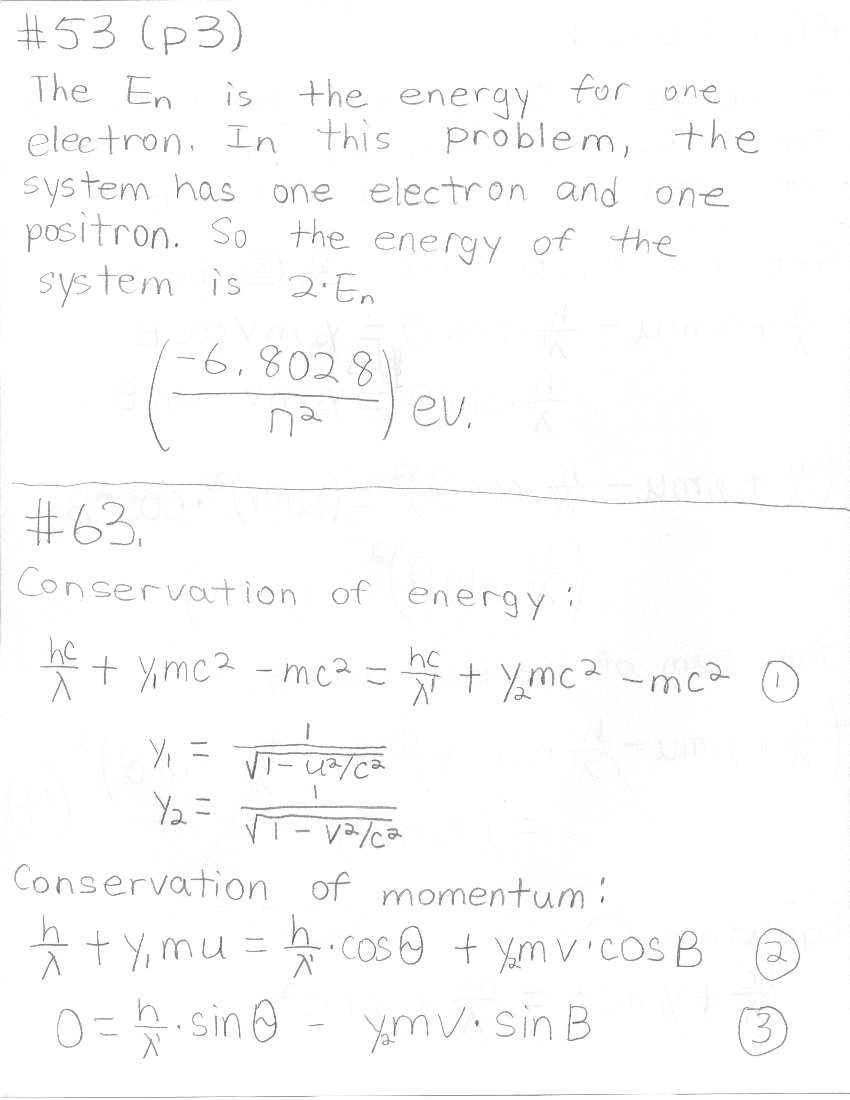 #53 (p3)
The En is the energy for one
electron. In this problem, the
system has one electron and one
positron. So the energy of the
system is 2·En
(-6.8028/n²) ev.
#63.
Conservation of energy:
hc/λ + γ₁mc² - mc² = hc/λ' + γ₂mc² - mc² ①
γ₁ = 1/√(1 - u²/c²)
γ₂ = 1/√(1 - v²/c²)
Conservation of momentum:
h/λ + γ₁mu = h/λ' · cosθ + γ₂mv · cosB ②
0 = h/λ' · sinθ - γ₂mv · sinB ③